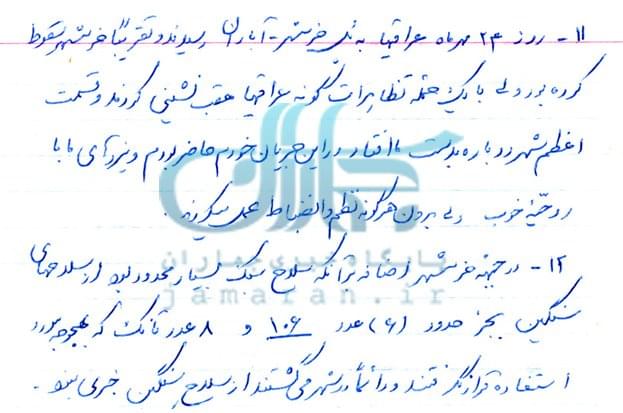 ۱۱- روز ۲۴ مهرماه عراقیها به پل خرمشهر-آبادان رسیدند و تقریباً خرمشهر سقوط
کرده بود ولی با یک حمله تظاهرات گونه عراقیها عقب نشینی کردند و قسمت
اعظم شهر دوباره بدست ما افتاد در این جریان خودم حاضر بودم و نیروهای ما با
روحیه خوب ولی بدون هرگونه نظم و انضباط عمل میکردند.
جماران
پایگاه خبری جماران
jamaran.ir
۱۲- در جبهه خرمشهر اضافه برآنکه سلاح سبک بسیار محدود بود از سلاحهای
سنگین بجز حدود (۶) عدد ۱۰۶ و ۸ عدد تانک که بهیچوجه مورد
استفاده قرار نگرفتند و دائماً در شهر می گشتند از سلاح سنگین خبری نبود.